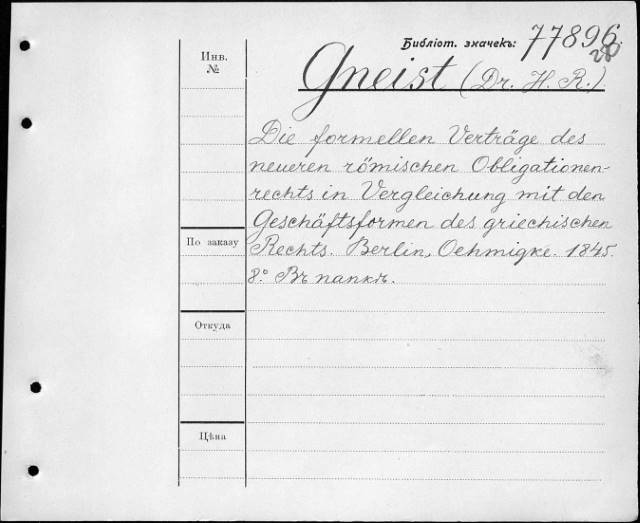 Библіот. значекъ: 77896
Инв.
№
Gneist (Dr. H. R.)
Die formellen Verträge des
neueren römischen Obligationen-
rechts in Vergleichung mit den
Geschäftsformen des griechischen
По заказу
Rechts. Berlin, Oehmigke. 1845.
8° Въ папкѣ.
Откуда
Цѣна